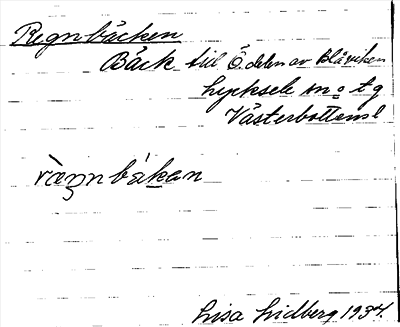 Regnbäcken
Bäck till Ö. delen av Blåviken
Lycksele sn o tg
Västerbottens l
ræŋnbäkən
Lisa Lidberg 1934.